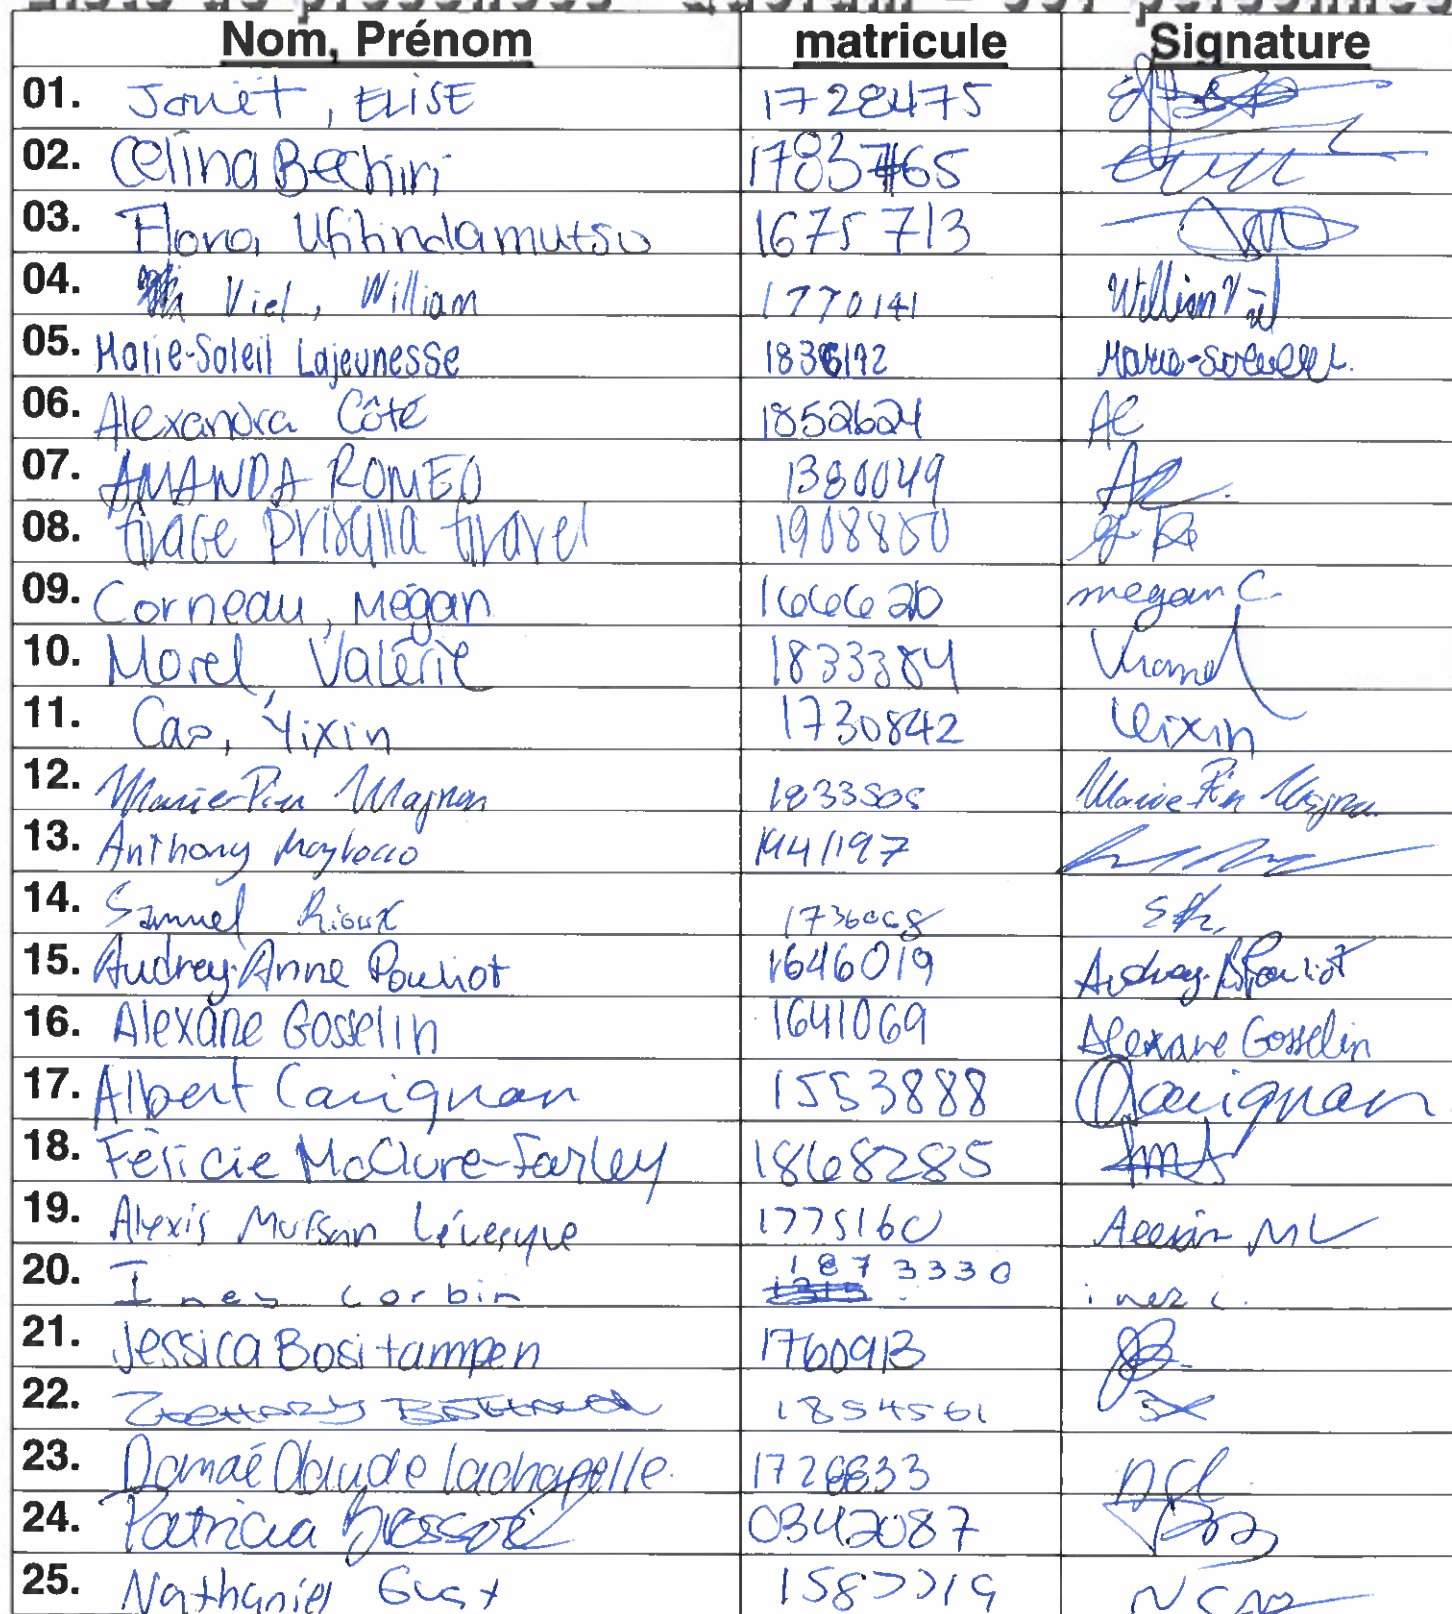 Liste de présences - Quorum - 337 personnes
Nom, Prénom matricule Signature
01. Jouët, ELISE 1728475
02. Celina Bechiri 1783765
03. Flora, Ufitindamutsu 1675713
04. Viel, William 1770141 William Viel
05. Marie-Soleil Lajeunesse 1836172 Marie-Soleil L.
06. Alexandra Côté 1852624 AC
07. AMANDA ROMEO 1380049 AR
08. Grace Priscilla Gravel 1908800
09. Corneau, Mégan 1666620 megan C.
10. Morel, Valérie 1833384 Vmorel
11. Cao, Yixin 1730842 Yixin
12. Marie-Pier Magnan 1833505 Marie Pier Magnan
13. Anthony 1441197
14. Samuel Rioux 1736068 SR.
15. Audrey-Anne Pouliot 1646019 Audrey-A Pouliot
16. Alexane Gosselin 1641069 Alexane Gosselin
17. Albert Carignan 1553888 ACarignan
18. Félicie McClure-Farley 1868285
19. Alexis Morsan Lévesque 1775160 Alexis ML
20. Inez Corbin 1873330 inez c.
21. Jessica Bositampen 1760913 JB
22. 1854561
23. Danaé Claude Lachapelle 1726833 DCL
24. Patricia Brossoit 0342087
25. Nathaniel Gust 1587719